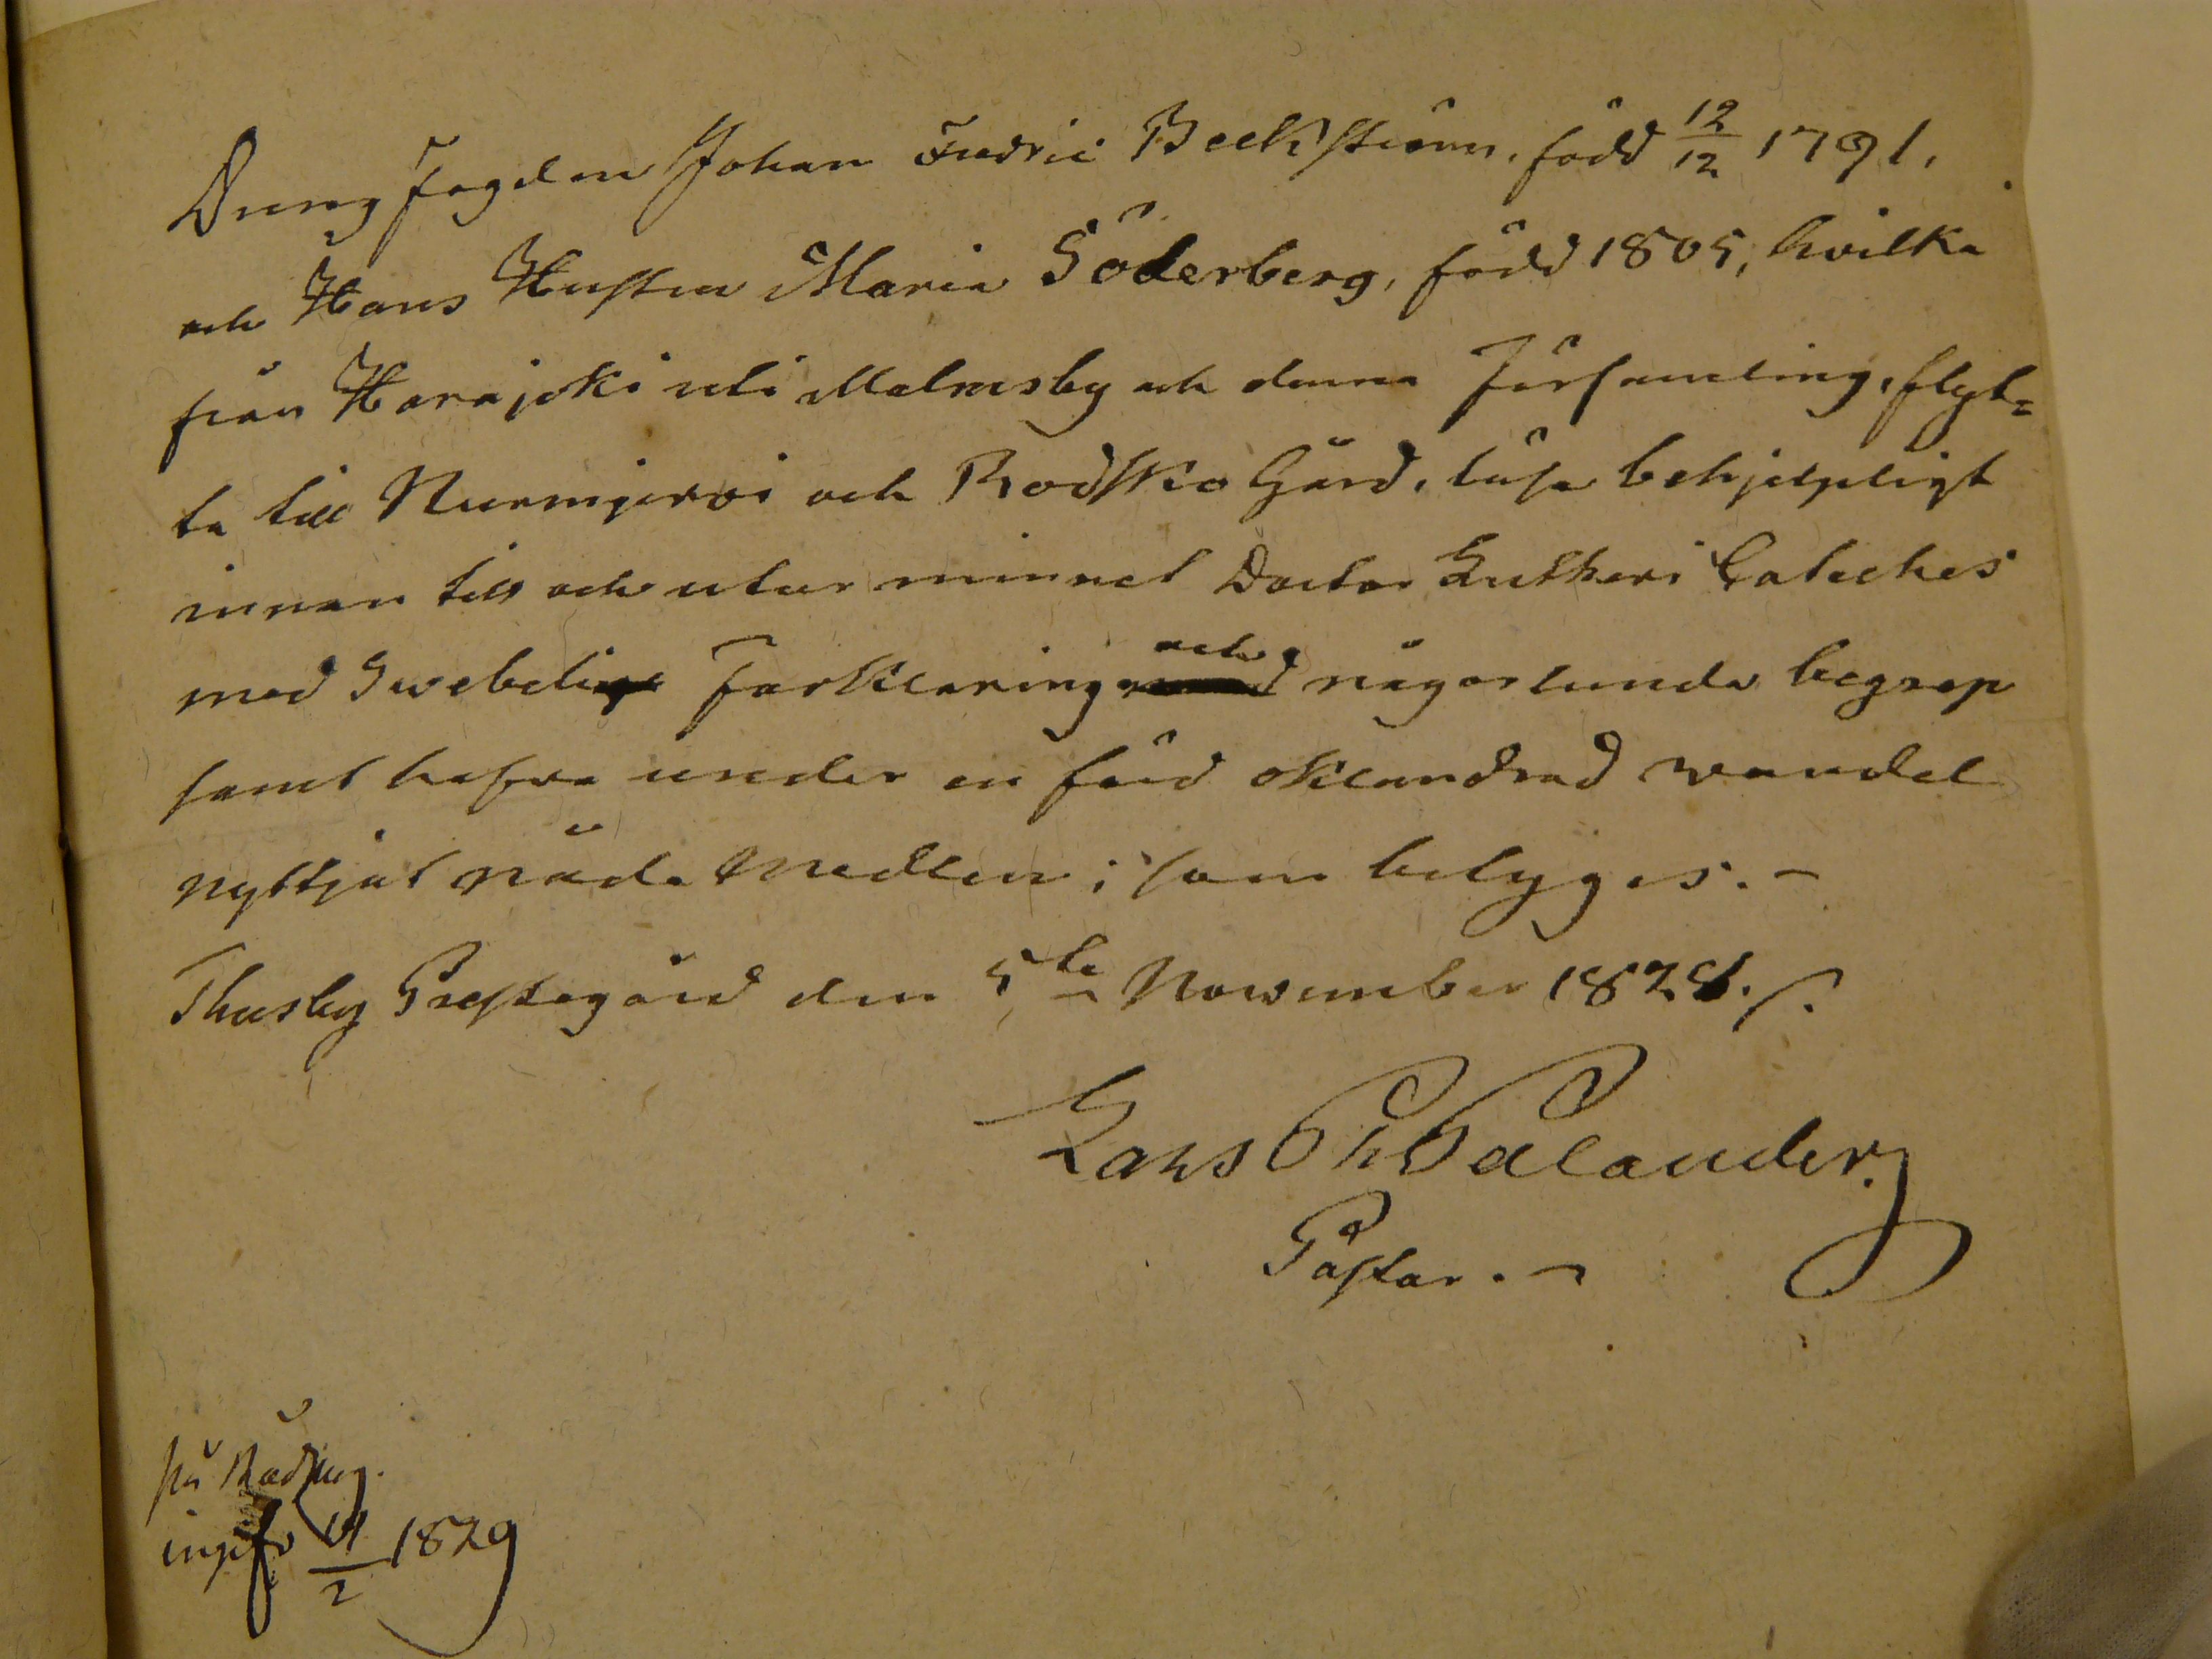 Drengfogden Johan Fredric Beckström, född 12/12 1791,
och Hans Hustru Maria Söderberg, född 1805, hvilka
från Harajoki uti Malmsby och denna Församling, flyt=
ta till Nurmijervi och Rodsko Gård, läsa behjelpligt
innan till och utur minnet Doctor Lutheri Cateches
med Swebelii Förklaring och någorlunda begrep
samt hafva under en förd oklandrad wandel
nyttjat nåde Medlen; som betyges. –
Thusby Prestegård den 5te November 1828. /.
Lars Ph Palander.
Pastor. –
1829